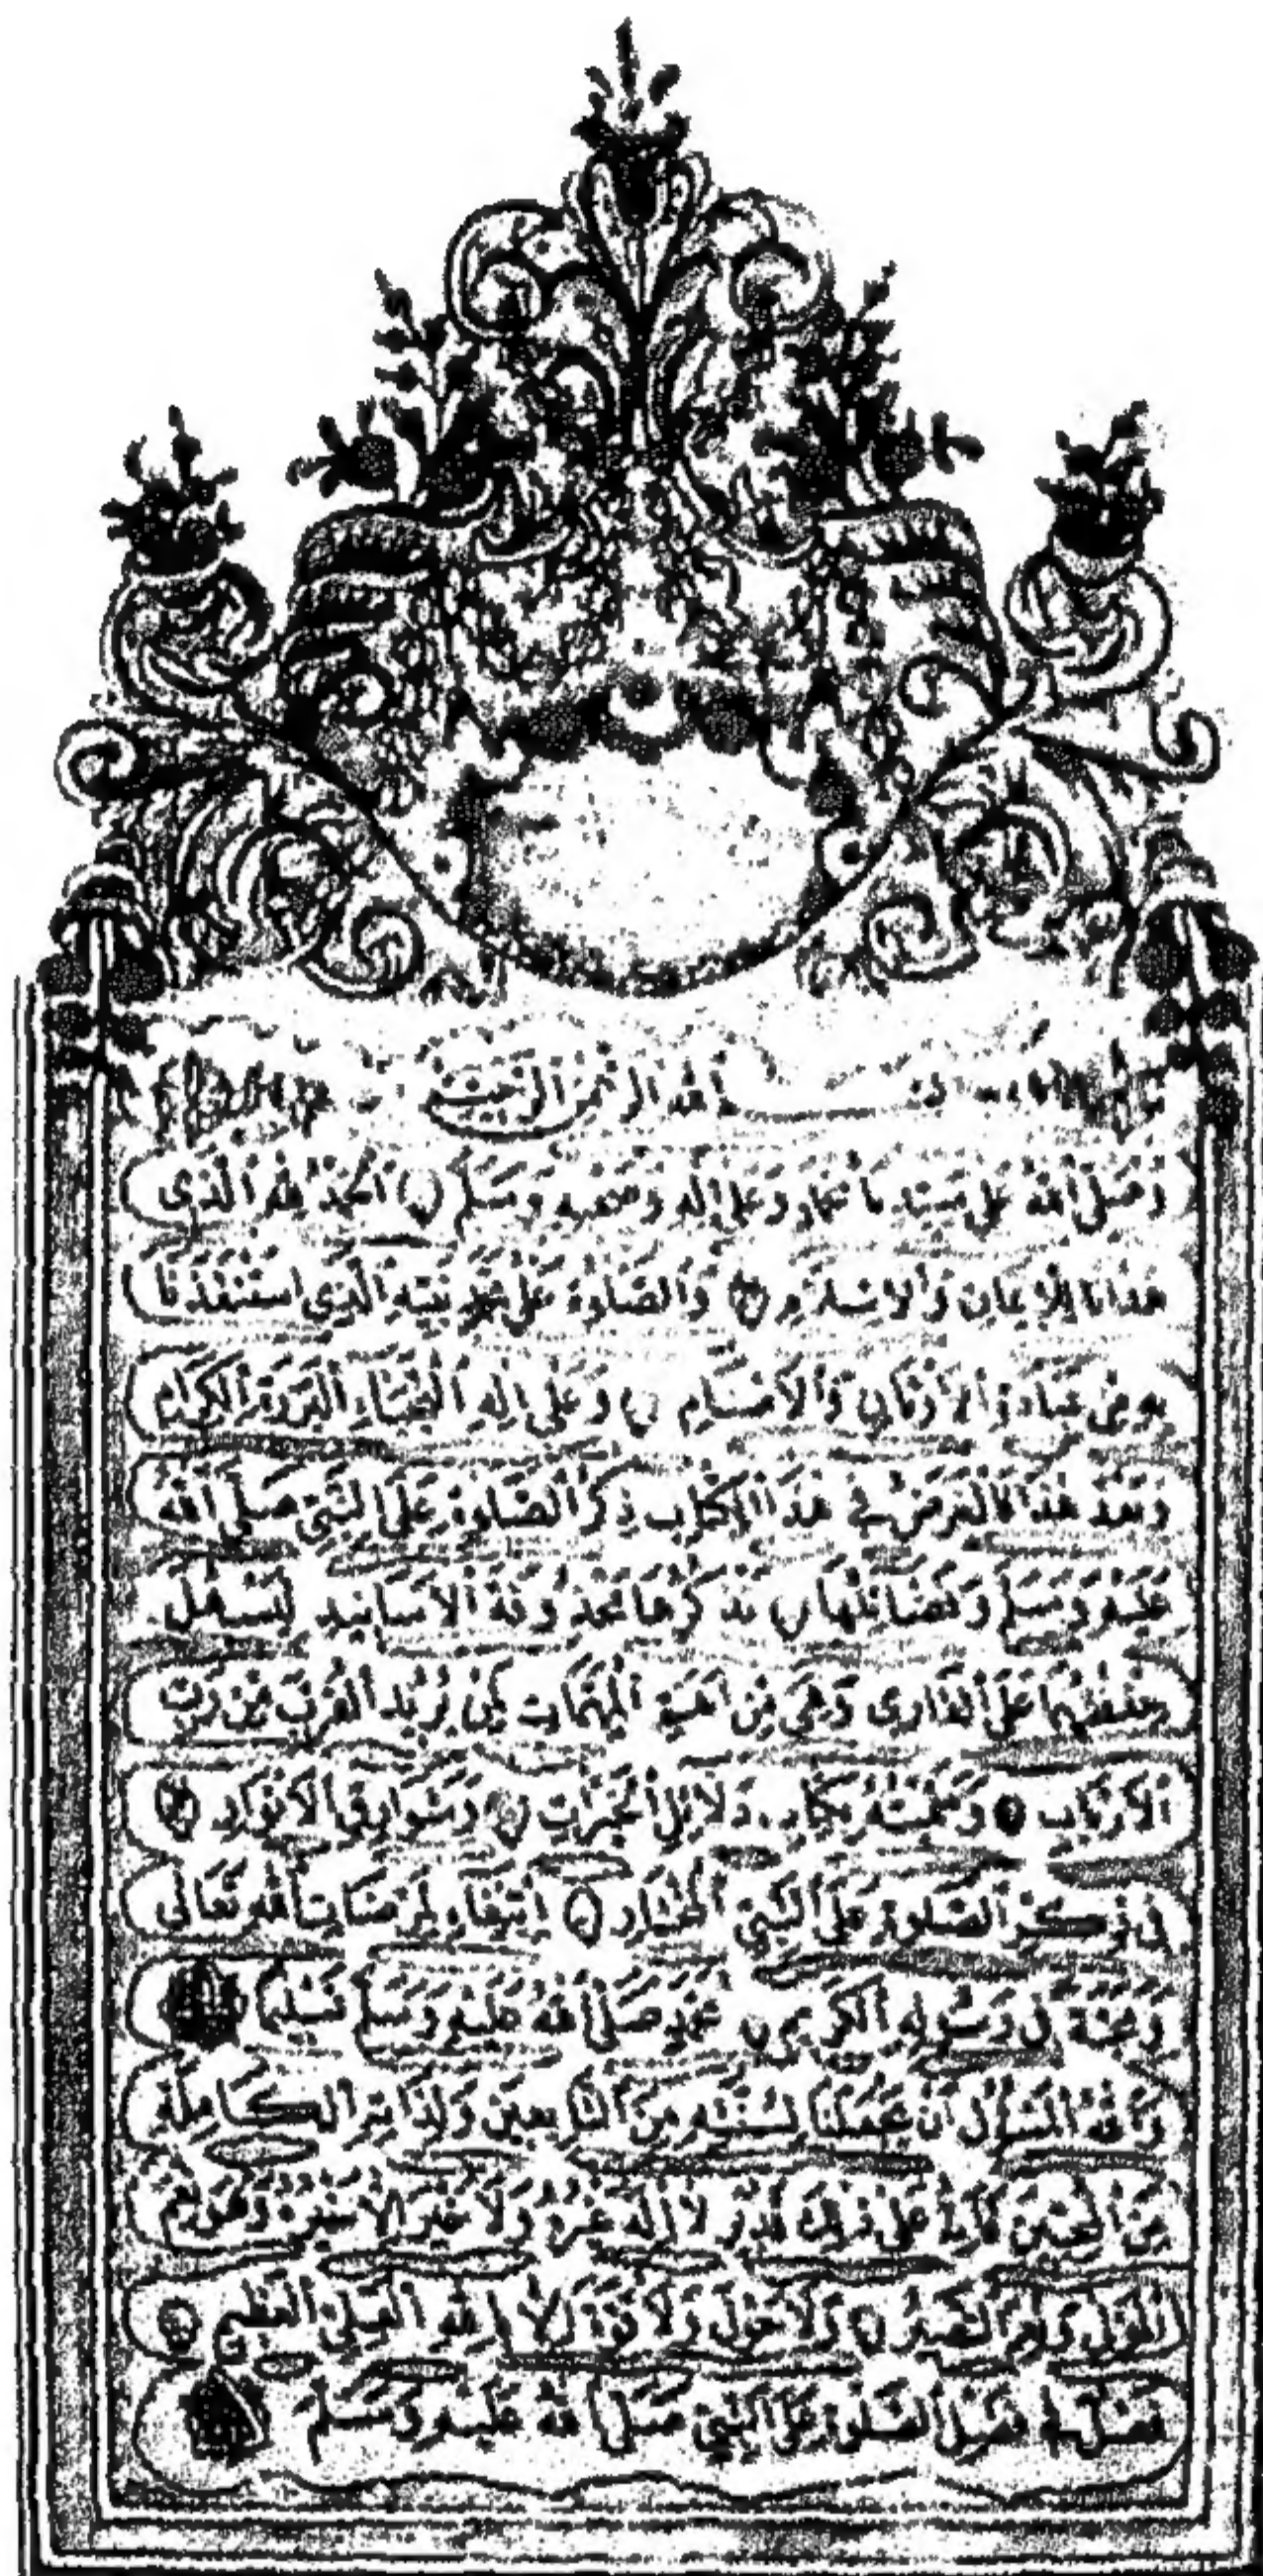 بسم الله الرحمن الرحيم
وَصَلَّى اللهُ عَلَى سَيِّدِنَا مُحَمَّدٍ وَعَلَى الِهِ وَصَحْبِهِ وَسَلَّمَ اَلْحَمْدُ لِلّٰهِ الَّذِي
هَدَانَا لِلْاِيمَانِ وَالْاِسْلَامِ وَالصَّلٰوةُ عَلَى مُحَمَّدٍ نَبِيِّهِ الَّذِي اسْتَنْقَذَنَا
بِهِ مِنْ عِبَادَةِ الْاَوْثَانِ وَالْاَصْنَامِ وَعَلَى الِهِ النُّجَبَاءِ الْبَرَرَةِ الْكِرَامِ
وَبَعْدُ هٰذَا فَالْغَرَضُ فِي هٰذَا الْكِتَابِ ذِكْرُ الصَّلٰوةِ عَلَى النَّبِيِّ صَلَّى اللهُ
عَلَيْهِ وَسَلَّمَ وَفَضَائِلِهَا نَذْكُرُهَا مَحْذُوفَةَ الْاَسَانِيدِ لِيَسْهُلَ
حِفْظُهَا عَلَى الْقَارِئِ وَهِيَ مِنْ اَهَمِّ الْمُهِمَّاتِ لِمَنْ يُرِيدُ الْقُرْبَ مِنْ رَبِّ
الْاَرْبَابِ وَسَمَّيْتُهُ بِكِتَابِ دَلَائِلِ الْخَيْرَاتِ وَشَوَارِقِ الْاَنْوَارِ
فِي ذِكْرِ الصَّلٰوةِ عَلَى النَّبِيِّ الْمُخْتَارِ اِبْتِغَاءً لِمَرْضَاتِ اللهِ تَعَالَى
وَمَحَبَّةً فِي رَسُولِهِ الْكَرِيمِ مُحَمَّدٍ صَلَّى اللهُ عَلَيْهِ وَسَلَّمَ تَسْلِيمًا
وَاللهُ الْمَسْؤُلُ اَنْ يَجْعَلَنَا لِسُنَّتِهِ مِنَ التَّابِعِينَ وَلِذَاتِهِ الْكَامِلَةِ
مِنَ الْمُحِبِّينَ فَاِنَّهُ عَلَى ذٰلِكَ قَدِيرٌ لَا اِلٰهَ غَيْرُهُ وَلَا خَيْرَ اِلَّا خَيْرُهُ وَهُوَ نِعْمَ
الْمَوْلَى وَنِعْمَ النَّصِيرُ وَلَا حَوْلَ وَلَا قُوَّةَ اِلَّا بِاللهِ الْعَلِيِّ الْعَظِيمِ
فَصْلٌ فِي فَضْلِ الصَّلٰوةِ عَلَى النَّبِيِّ صَلَّى اللهُ عَلَيْهِ وَسَلَّمَ